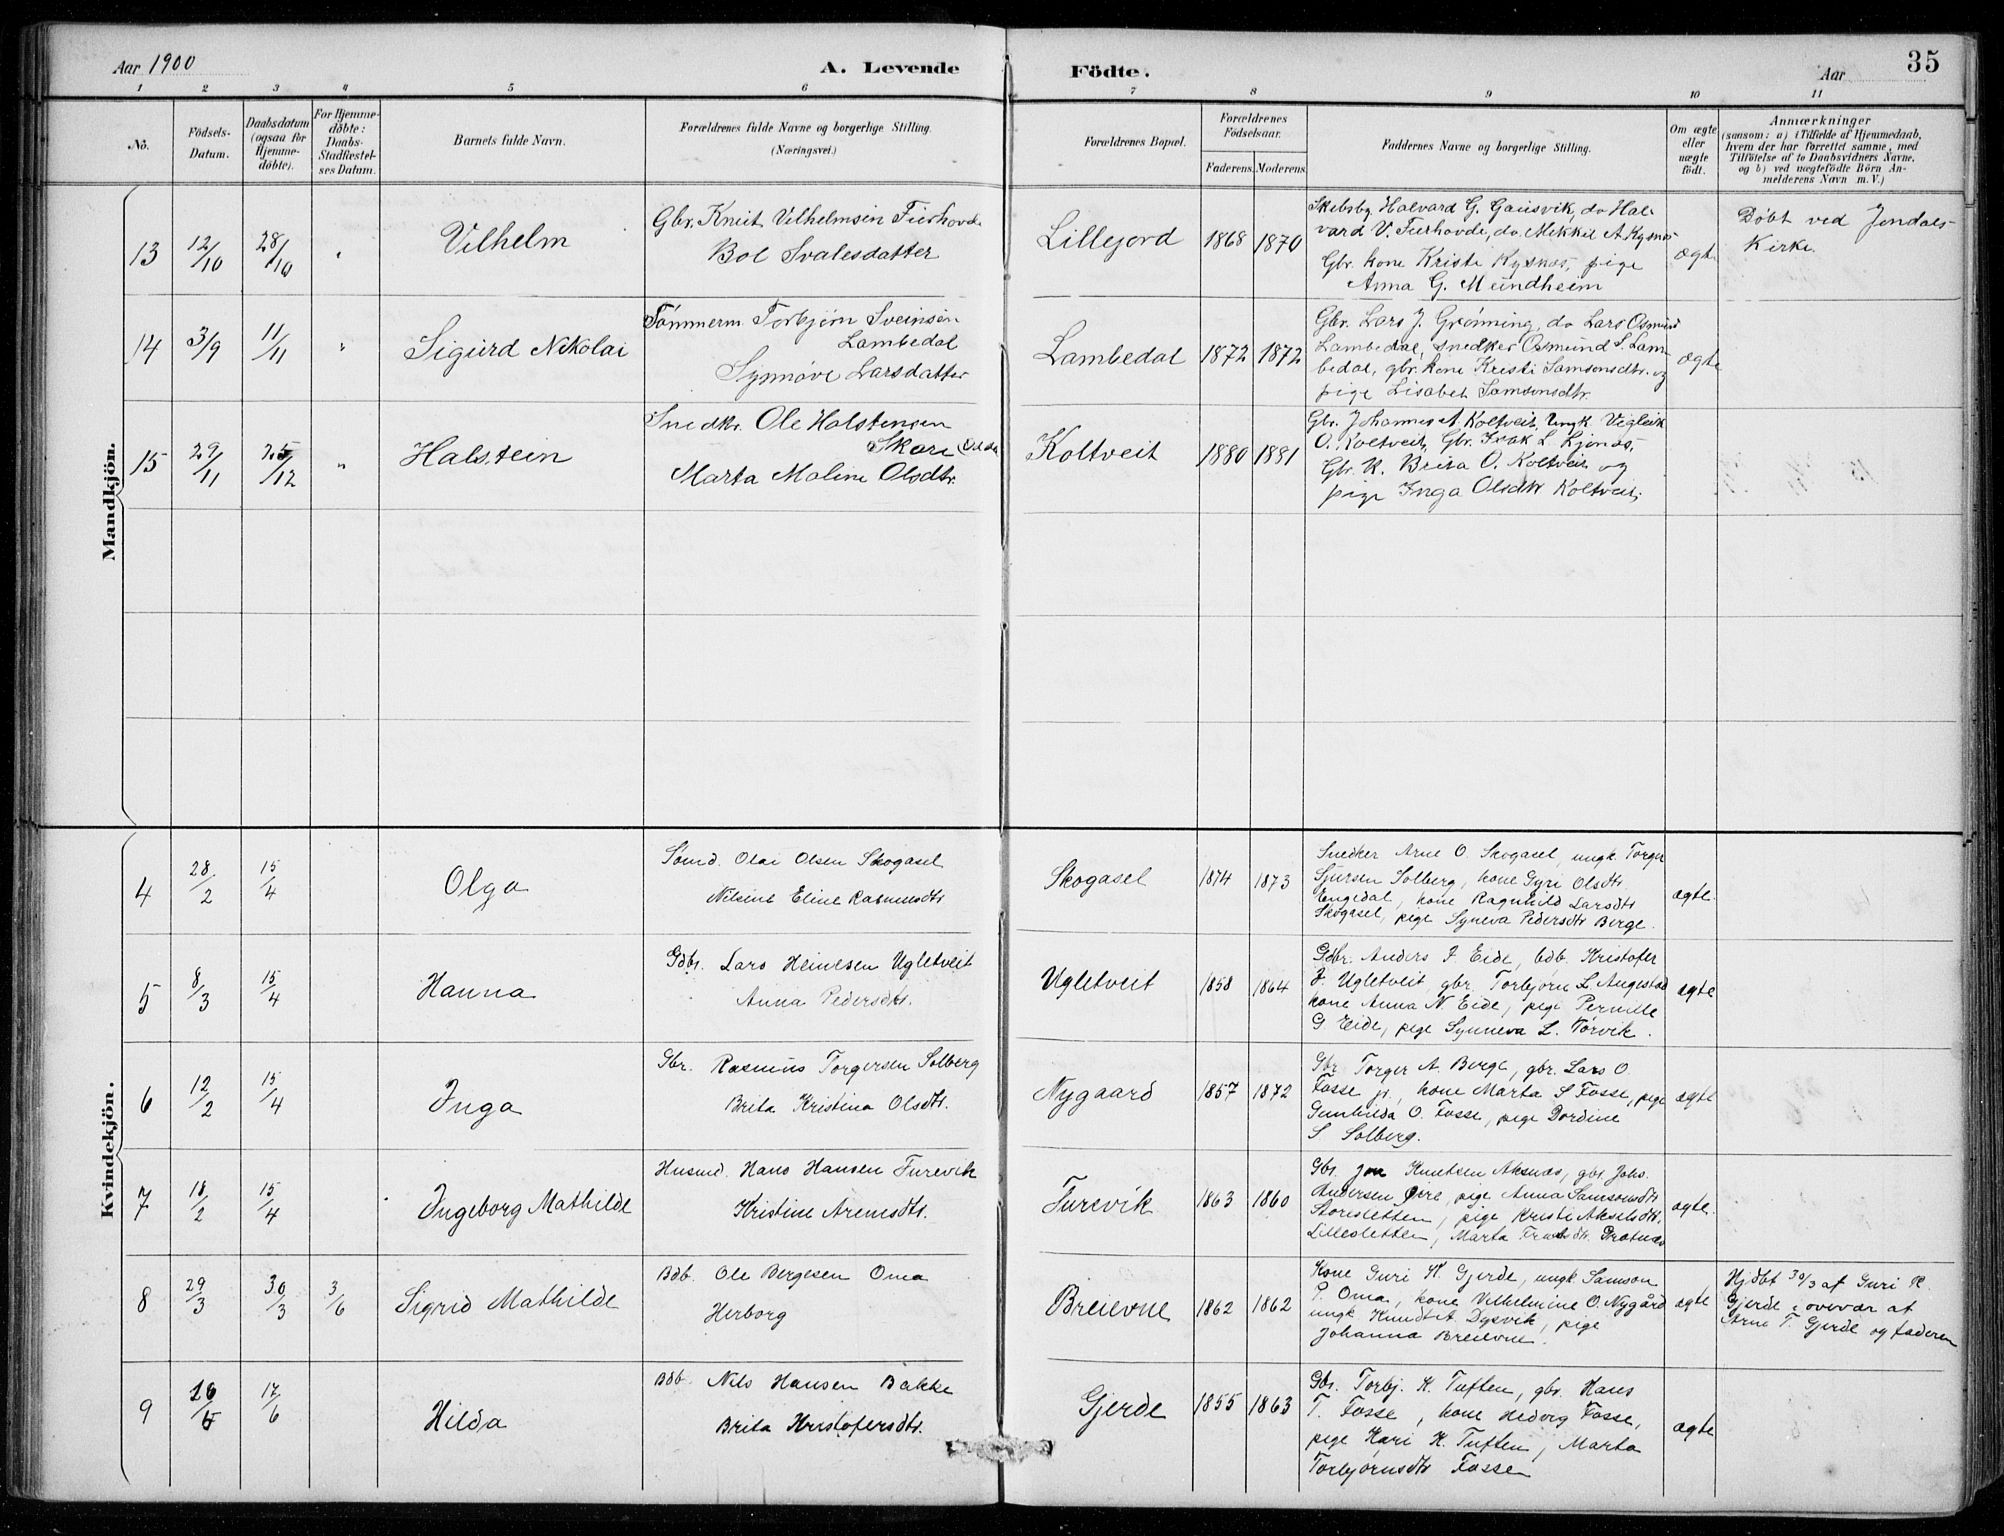 Aar 1900
A. Levende
Födte.
Aar
35
1 2 3 4 5 6 7 8 9 10 11
No.
Födsels-
Datum.
Daabsdatum
(ogsaa for
Hjemme-
döbte).
For Hjemme-
döbte:
Daabs-
Stadfæstel-
ses Datum.
Barnets fulde Navn.
Forældrenes fulde Navne og borgerlige Stilling.
(Næringsvei.)
Forældrenes Bopæl.
Forældrenes
Födselsaar.
Faderens. Moderens.
Faddernes Navne og borgerlige Stilling.
Om ægte
eller
uægte
födt.
Anmærkninger
(saasom: a) i Tilfælde af Hjemmedaab,
hvem der har forrettet samme, med
Tilföielse af to Daabsvidners Navne,
og b) ved uægtefödte Börn An-
melderens Navn m. V.)
Mandkjön.
13
12/10
28/10
"
Vilhelm
Gbr. Knut Vilhelmsen Fierhovde
Bol Svalesdatter
Lillejord
1868
1870
Skebsby Halvard G. Gausvik, do Hal-
vard V. Fierhovde, do Mekkil A Kysnæs
Gbr. kone Kristi Kysnæs, pige
Anna G. Mundheim
ægte
Døbt ved Jondals
Kirke.
14
3/9
11/11
"
Sigurd Nikolai
Tømmerm. Torbjørn Sveinsen
Lambedal
Synnøve Larsdatter
Lambedal
1872
1872
Gbr. Lars J. Grønning, do Lars Osmund
Lambedal, snedker Osmund S. Lam-
bedal, gbr. kone Kristi Samsonsdtr. og
pige Lisabet Samsonsdtr.
ægte
15
29/11
25/12
"
Halstein
Snedkr. Ole Halstensen
Skare
Marta Malene Olsdtr.
Koltveit
1880
1881
Gbr. Johannes A. Koltveit, Ungk. Vigleik
O. Koltveit, Gbr. Isak L. Kjonås,
Gbr. K. Brita O. Koltveit og
pige Inga Olsdtr Koltveit.
Kvindekjön.
4
28/2
15/4
Olga
Sømd. Olai Olsen Skogasel
Nilsine Eline Rasmusdtr
Skogasel
1874
1873
Snedker Arne O. Skogasel, ungk. Torger
Sjursen Solberg, kone Gyri Olsdtr.
Engedal, kone Ragnhild Larsdtr
Skogasel, pige Synева Pedersdtr Berge.
ægte.
5
8/3
15/4
Hanna
Gdbr. Lars Heinesen Ugletveit
Anna Pedersdtr.
Ugletveit
1858
1864
Gdbr. Anders J. Eide, bdb. Kristofer
J. Ugletveit, gbr. Torbjørn L. Augestad
kone Anna N. Eide, pige Pernille
G Eide, pige Synneva L. Tørvik.
ægte
6
12/2
15/4
Inga
Gbr. Rasmus Torgersen Solberg
Brita Kristina Olsdtr.
Nygaard
1857
1872
Gbr Torger A. Berge, gbr. Lars O.
Fosse jr, kone Marta S Fosse, pige
Gunhilda O. Fosse, pige Dordine
S Solberg.
ægte
7
18/2
15/4
Ingeborg Mathilde
Husmd. Hans Hansen Furevik
Kristine Arnesdtr.
Furevik
1863
1860
Gbr. Jon Knutsen Aksnæs, gbr. Johs.
Andersen Øvre, pige Anna Samsonsdtr
Storesletten, pige Kristi Akselsdtr.
Lillesletten, Marta Grotnæs
ægte.
8
29/3
30/3
3/6
Sigrid Mathilde
Bdb. Ole Bergesen Oma
Herborg
Breievne
1862
1862
Kone Guri K. Gjerde, ungk Samson
P. Oma, kone Vilhelmine O. Nygård
ungk Knudt A. Dysvik, pige
Johanna Breievne.
ægte
Hjdbt 30/3 af Guri K.
Gjerde i overvær af
Arne T. Gjerde og faderen
9
16/5
17/6
Hilda
Bdb. Nils Hansen Bakke
Brita Kristofersdtr.
Gjerde
1855
1863
Gbr. Torbj. K. Tuften, gbr. Hans
T. Fosse, kone Hedvig Fosse,
pige Kari K. Tuften, Marta
Torbjørnsdtr Fosse
ægte